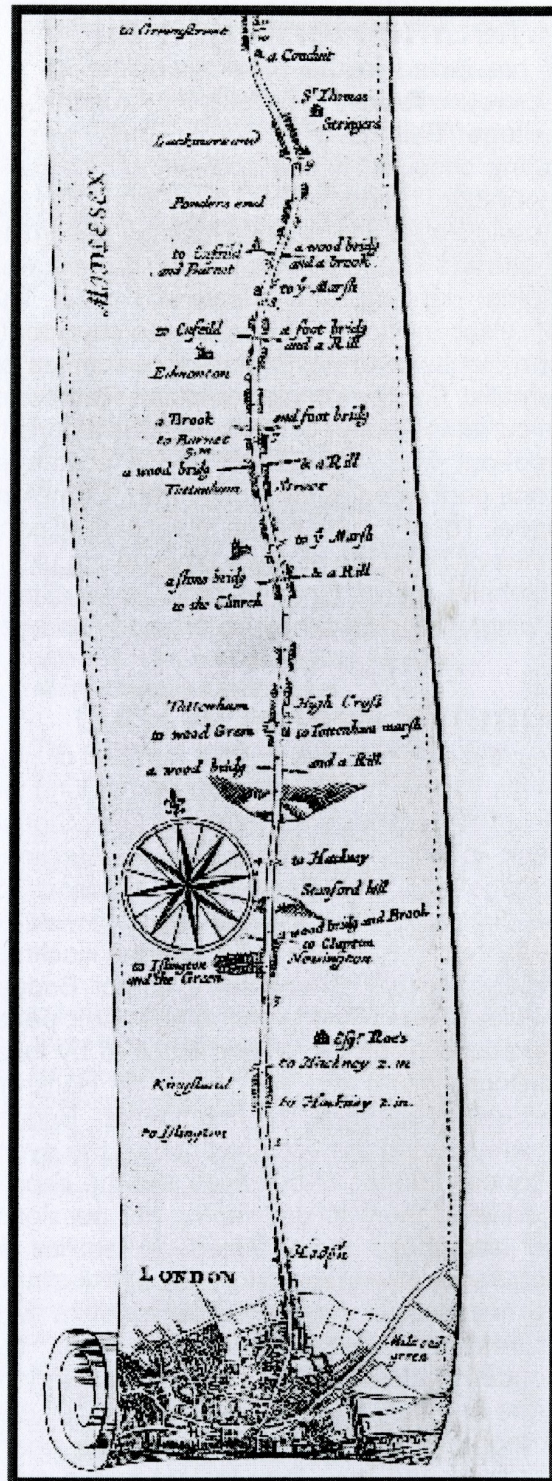 a Conduit
Sr. Thomas
Stringers
MIDLESEX
Ponders end
to Enfeild
and Barnet
a wood bridg
and a brook
to ye Marsh
to Enfeild
a foot bridg
and a Rill
Edmonton
a Brook
and foot bridg
to Barnet
5 m
a wood bridg
& a Rill
Tottenham
Street
to ye Marsh
a stone bridg
& a Rill
to the Church
Tottenham
High Cross
to wood Green
to Tottenham marsh
a wood bridg
and a Rill
to Hackney
Stanford hill
a wood bridg and Brook
to Clapton
Newington
to Islington
and the Green
3
Esqr. Roe's
to Hackney 2. m
Kingsland
to Hackney 2. m.
to Islington
1
LONDON
Mile end
green